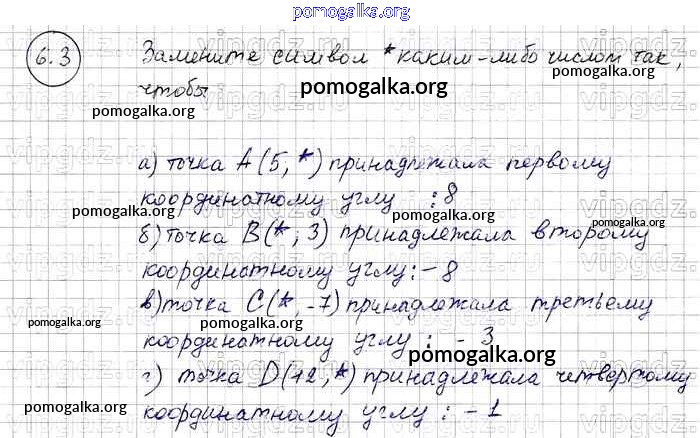 pomogalka.org
6.3 Замените символ * каким-либо числом так,
pomogalka.org
чтобы
pomogalka.org
а) точка A(5, *) принадлежала первому
координатному углу : 8
pomogalka.org pomogalka.org
б) точка B(*; 3) принадлежала второму
pomogalka.org
координатному углу: -8
в) точка C(*, -7) принадлежала третьему
pomogalka.org pomogalka.org
координатному углу : -3
pomogalka.org
г) точка D(12, *) принадлежала четвертому
pomogalka.org
координатному углу : -1